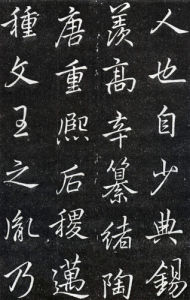 人也自少典錫
羨高辛纂緒陶
唐重熈后稷邁
種文王之胤乃